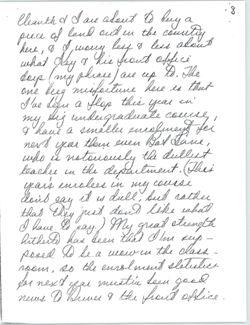 8
& I are about to buy a
piece of land out in the country
here, & I worry less & less about
what Jay & his front office
boys (my phrase) are up to. The
one big misfortune here is that
I've been a flop this year in
my big undergraduate course,
& have a smaller enrollment for
next year than even
who is notoriously the dullest
teacher in the department. (This
year's enrolees in my course
don't say it is dull, but rather
that they just don't like what
I have to say.) My great strength
hitherto has been that I'm sup-
posed to be a wow in the class-
room, so the enrolment statistics
for next year must've been good
news to & the front office.